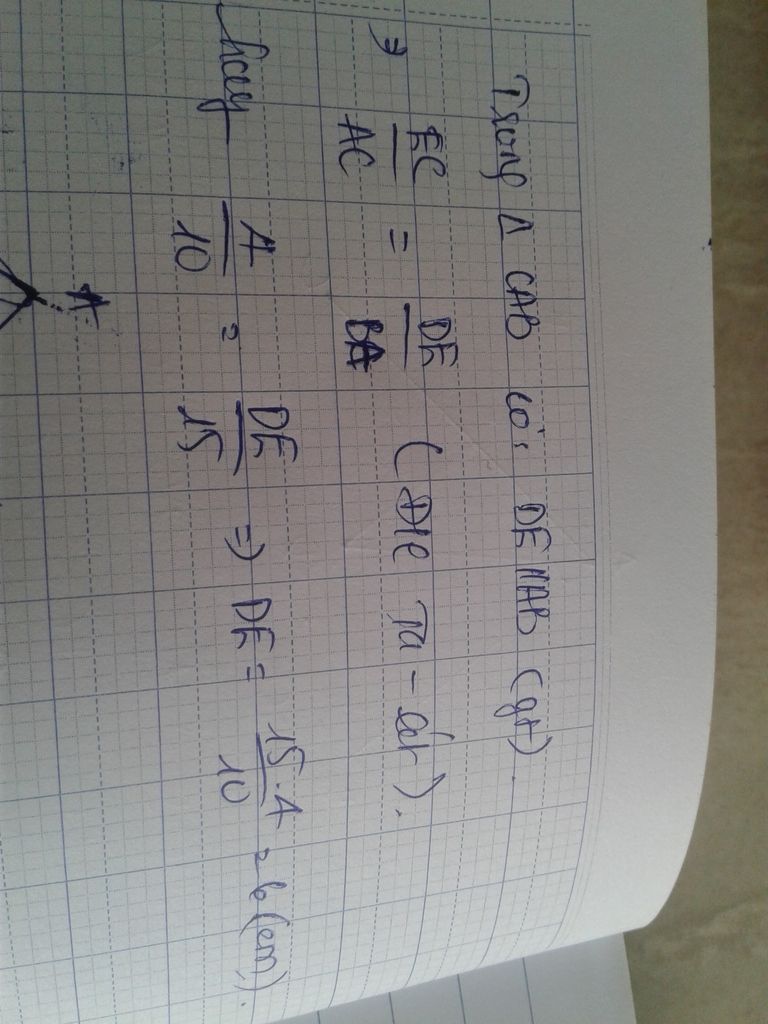 Trong Δ CAB có: DE // AB (gt).
⇒ EC/AC = DE/BA (Đlí Ta-lét).
hay 4/10 = DE/15 ⇒ DE = 15.4/10 = 6 (cm).
A